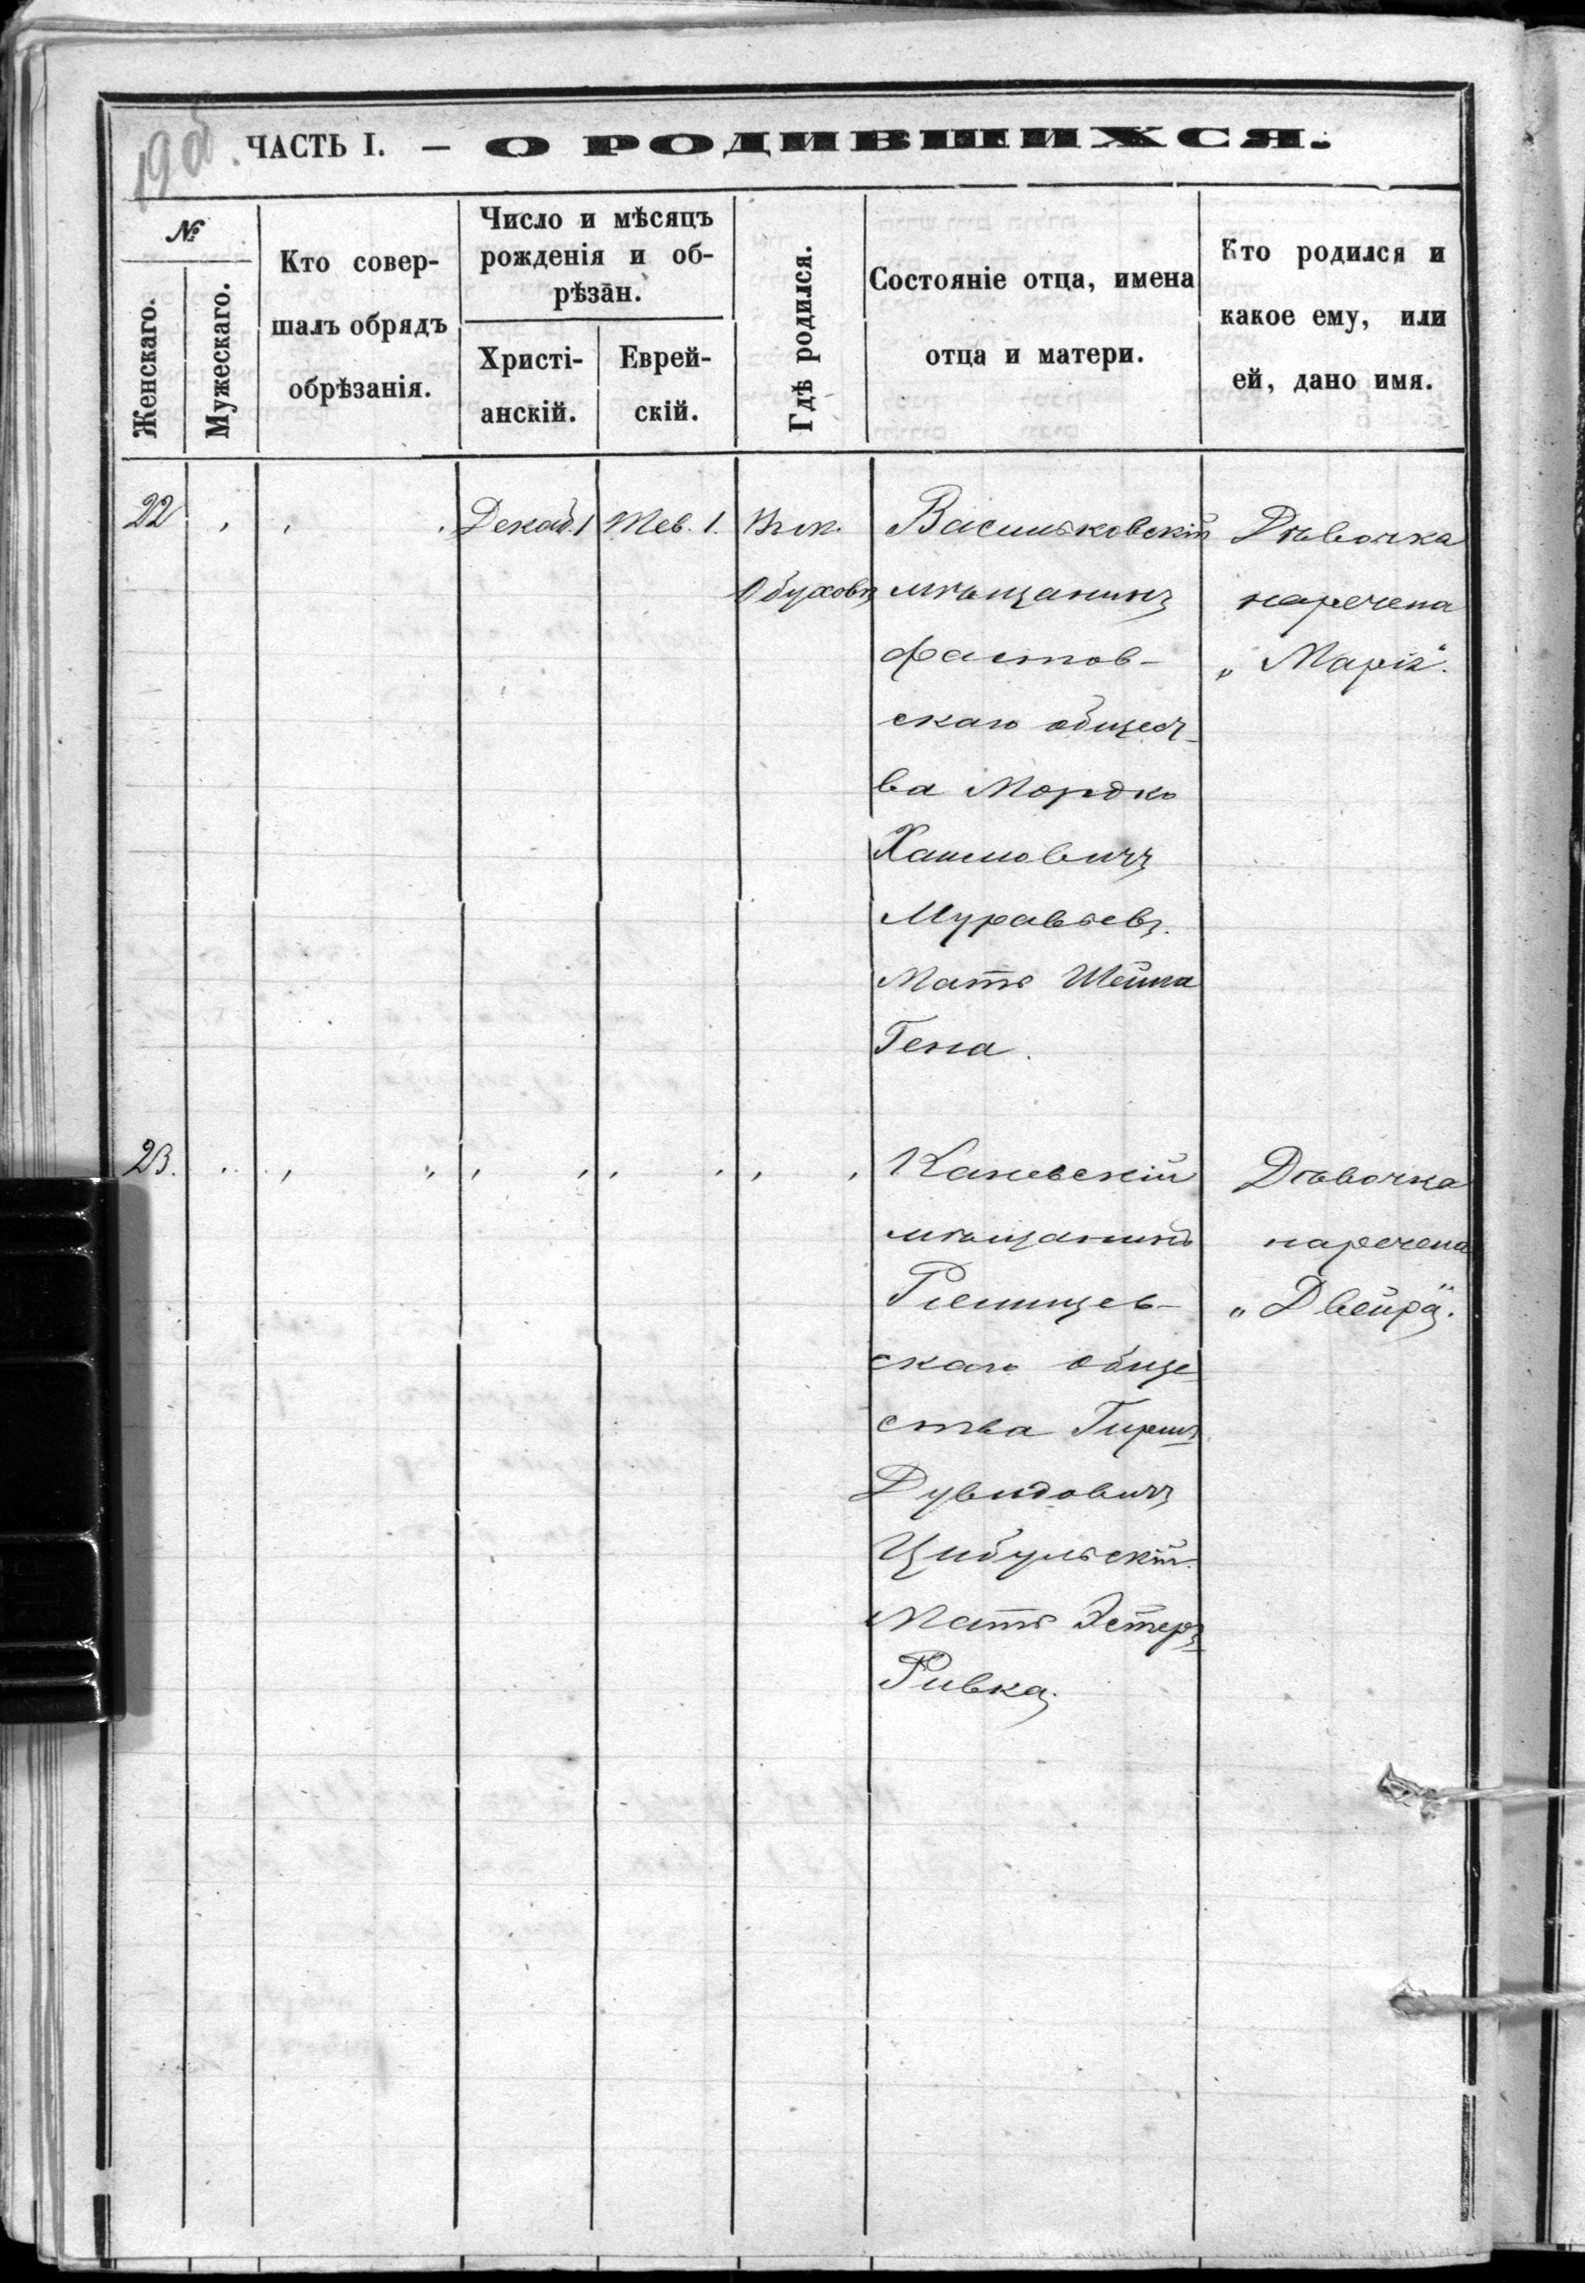 19 об.
ЧАСТЬ I. — О РОДИВШИХСЯ.
№
Женскаго.
Мужескаго.
Кто совер-
шалъ обрядъ
обрѣзанія.
Число и мѣсяцъ
рожденія и об-
рѣзан.
Христі-
анскій.
Еврей-
скій.
Гдѣ родился.
Состояніе отца, имена
отца и матери.
Кто родился и
какое ему, или
ей, дано имя.
22 Декаб. 1 Тев. 1. Въ м.
Обуховъ
Васильковскій
мѣщанинъ
Фастов-
скаго общест-
ва Мордко
Хаимовичъ
Муравьевъ.
Мать Шейна
Геня.
Дѣвочка
наречена
„Марія".
23.
Каневскій
мѣщанинъ
Ржищев-
скаго обще-
ства Гиршъ
Дувидовичъ
Цибульскій.
Мать Эстеръ-
Ривка.
Дѣвочка
наречена
„Двейра".